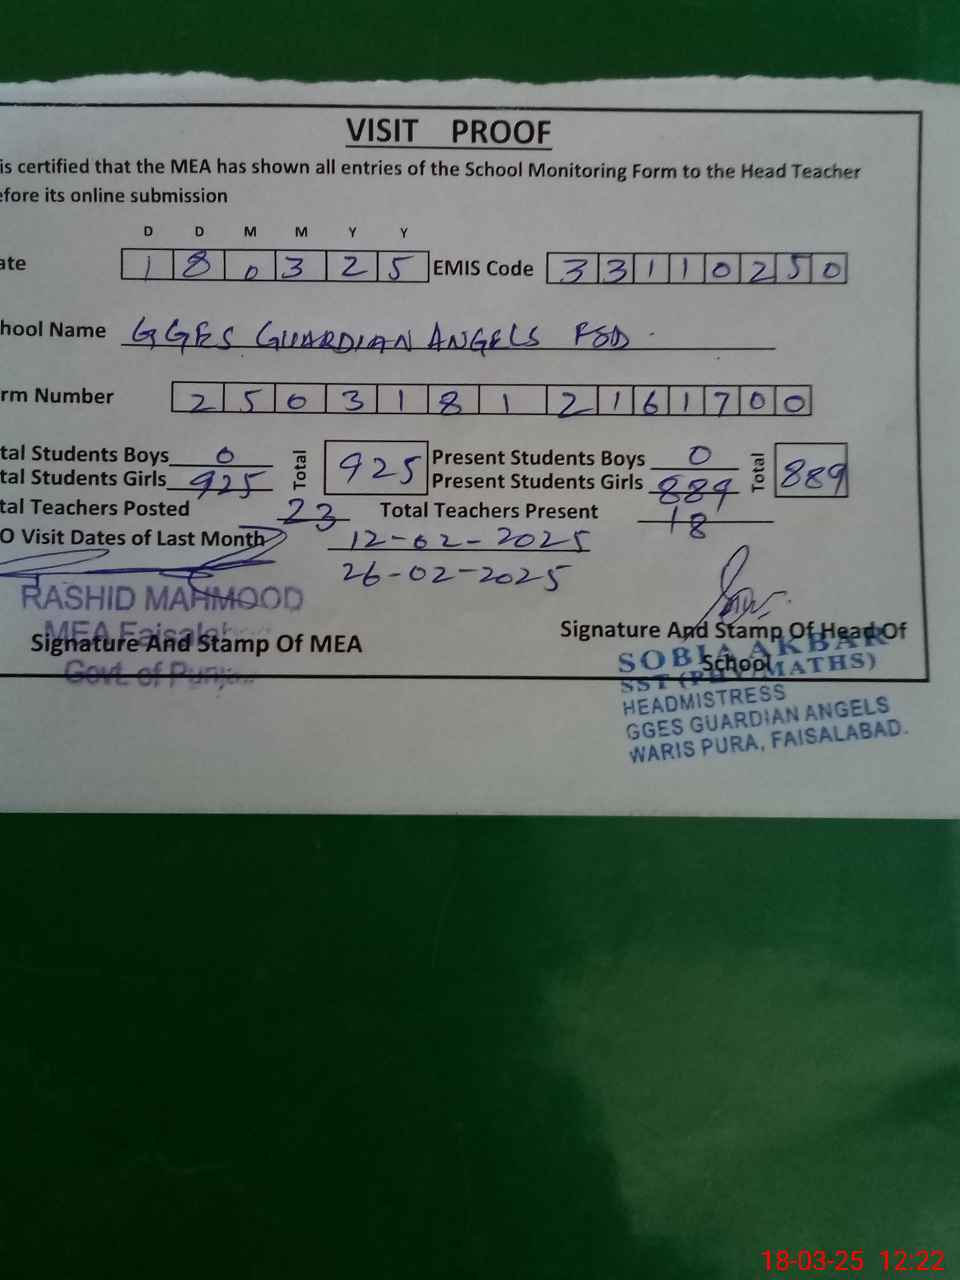 VISIT PROOF
is certified that the MEA has shown all entries of the School Monitoring Form to the Head Teacher
efore its online submission
D D M M Y Y
ate 1 8 0 3 2 5 EMIS Code 3 3 1 1 0 2 5 0
hool Name GGES GUARDIAN ANGELS FSD.
rm Number 2 5 0 3 1 8 1 2 1 6 1 7 0 0
tal Students Boys 0 Total 925 Present Students Boys 0 Total 889
tal Students Girls 925 Present Students Girls 889
tal Teachers Posted 23 Total Teachers Present 18
O Visit Dates of Last Month 12-02-2025
26-02-2025
RASHID MAHMOOD
MEA Faisalab
Govt. of Punj
Signature And Stamp Of MEA
Signature And Stamp Of Head Of
School
SOBIA AKBAR
SST (PHY/MATHS)
HEADMISTRESS
GGES GUARDIAN ANGELS
WARIS PURA, FAISALABAD.
18-03-25 12:22